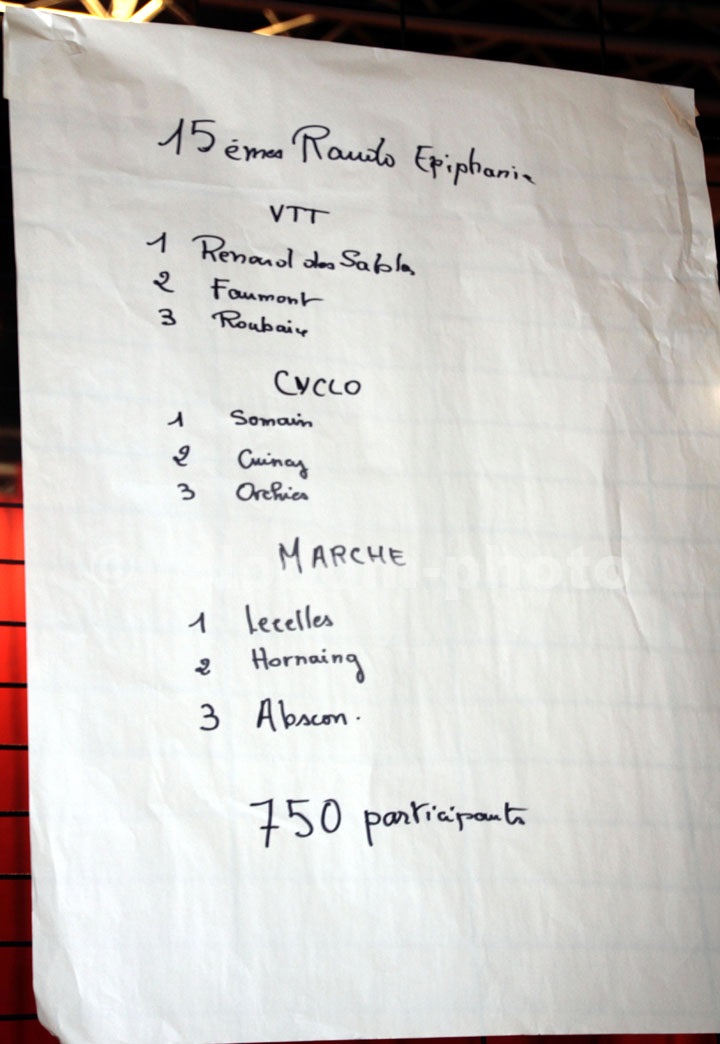 15 èmes Rando Epiphanie
VTT
1 Renard des Sables
2 Faumont
3 Roubaix
CYCLO
1 Somain
2 Cuincy
3 Orchies
MARCHE
1 Lecelles
2 Hornaing
3 Abscon.
750 participants